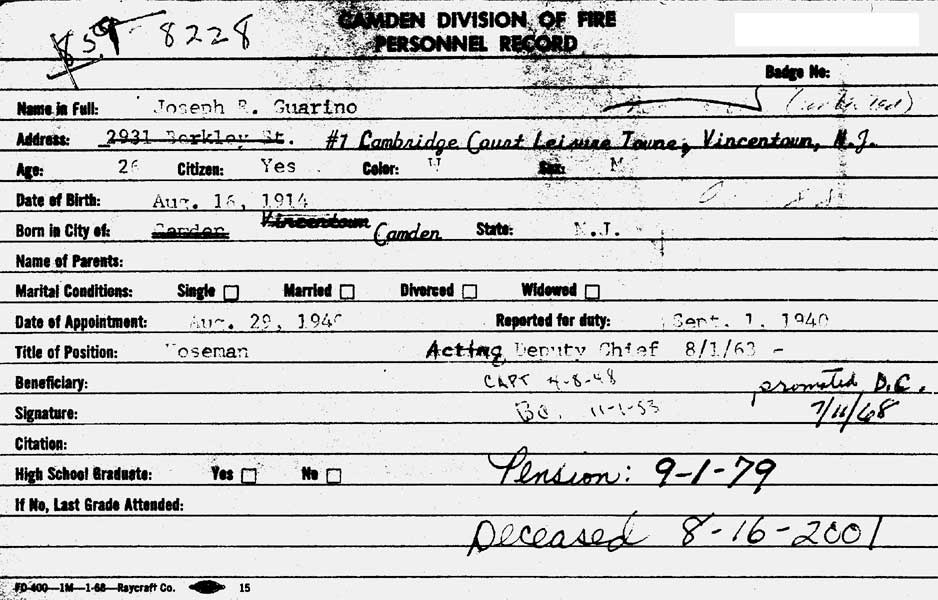 859-8228
CAMDEN DIVISION OF FIRE
PERSONNEL RECORD
Badge No:
Name in Full: Joseph R. Guarino
Address: 2931 Berkley St. #7 Cambridge Court Leisure Towne, Vincentown, N.J.
Age: 26 Citizen: Yes Color: W Sex: M
Date of Birth: Aug. 16, 1914
Born in City of: Camden Vincentown Camden State: N.J.
Name of Parents:
Marital Conditions: Single Married Divorced Widowed
Date of Appointment: Aug. 29, 1940 Reported for duty: Sept. 1, 1940
Title of Position: Hoseman Acting Deputy Chief 8/1/63 -
Beneficiary: CAPT 4-8-48 promoted D.C.
Signature: BC. 11-1-53 7/11/68
Citation:
High School Graduate: Yes No Pension: 9-1-79
If No, Last Grade Attended:
Deceased 8-16-2001
FD-400—1M—1-68—Raycraft Co. 15